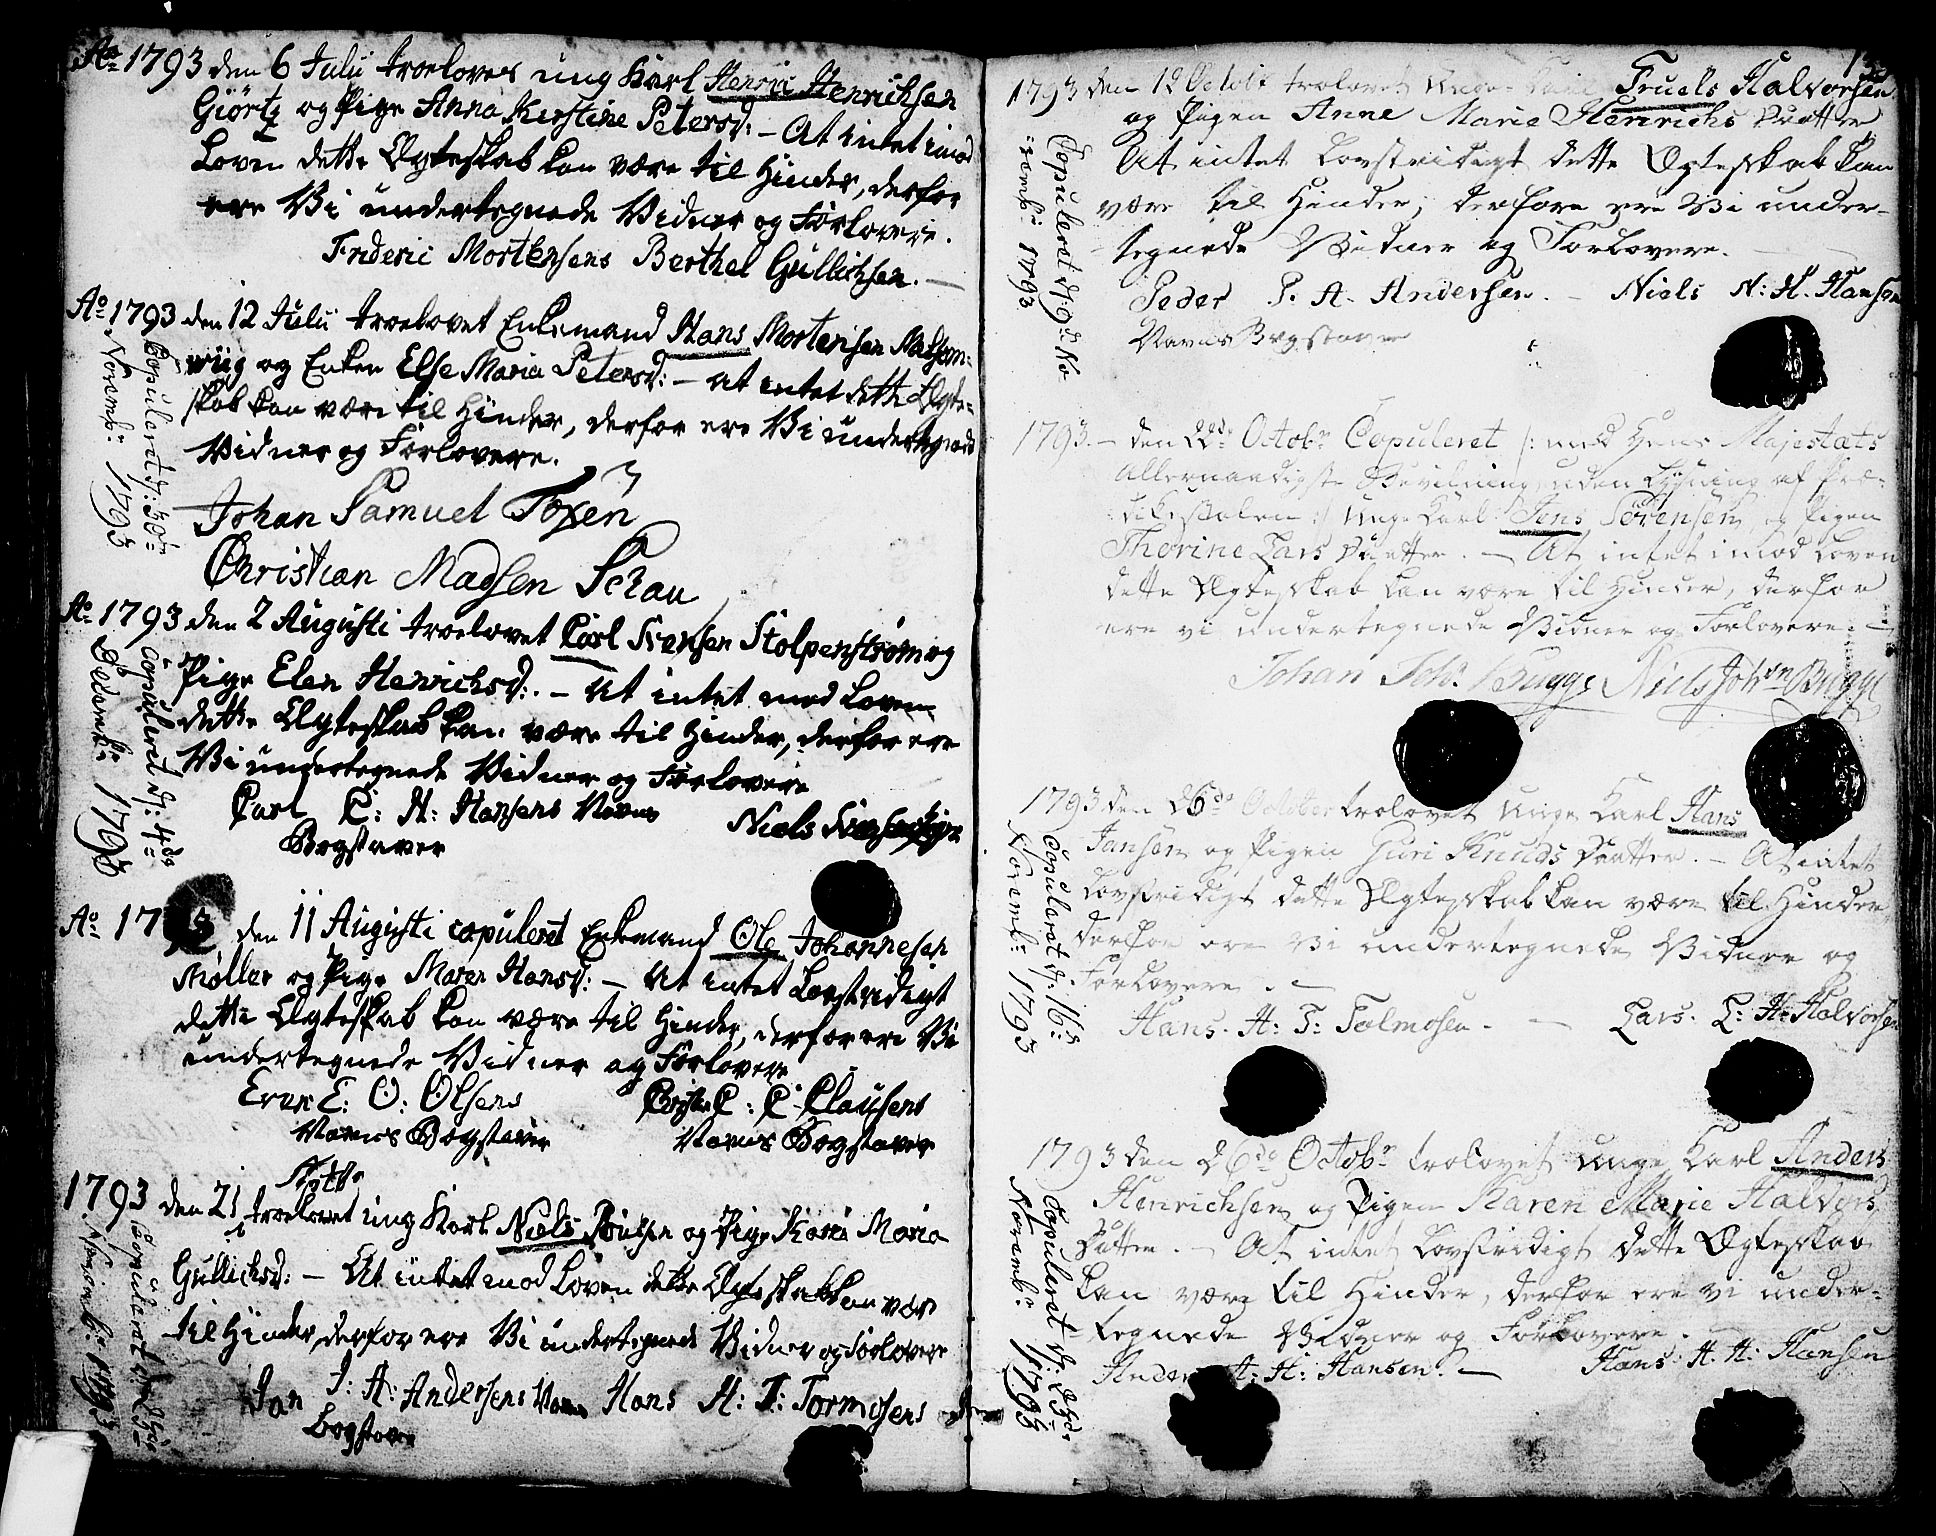 Ao 1793 den 6 Julii troelovet ung Karl Henric Henrichsen
Giörtz og Pige Anna Kirstine Petersd: - At intet imod
Loven dette Ægteskab kan være til Hinder, derfor
ere Vi undertegnede Vidner og Forlovere.
Frideric Mortensens Berthel Gullichsen.
Ao 1793 den 12 Julii troelovet Enkemand Hans Mortensen
og Enken Else Maria Petersd: - at intet dette Ægte-
skab kan være til Hinder, derfor ere Vi undertegnede
Vidner og Forlovere.
Johan Samuel Foxen
Christian Madsen Schau
Copuleret d: 30te
Novemb: 1793
Ao 1793 den 2 Augusti troelovet Carl Svensen Stolpenstrøm og
Pige Elen Henrichsd: - At intet mod Loven
dette Ægteskab kan være til Hinder, derfor ere
Vi undertegnede Vidner og Forlovere
Carl C: H: Hansens Navns Niels
Bogstaver
Copuleret d: 4de
Decemb: 1793
Ao 1793 den 11 Augusti copuleret Enkemand Ole Johannesen
Møller og Pige Maren Hansd: - At intet Lovstridigt
dette Ægteskab kan være til Hinder, derfor ere Vi
undertegnede Vidner og Forlovere
Even E: O: Olsens C: C: Clausens
Navns Bogstaver Navns Bogstaver
1793 den 21 troelovet ung Karl Niels og Pige Maria
Gullichsd: - At intet mod Loven dette Ægteskab kan være
til Hinder, derfor ere Vi undertegnede Vidner og Forlovere
Jan J: A: Andersens Navns Hans H: T: Tormosens
Bogstaver
Copuleret
Novemb: 1793
1793 den 12 Octobr trolovet Unge Karl Truels Halvorsen
og Pigen Anne Marie Henrichs Daatter
At intet Lovstridigt dette Ægteskab kan
være til Hinder, derfore ere Vi under-
tegnede Vidner og Forlovere.
Peder P. A. Andersen. - Niels N: H. Hansen
Navns Bogstaver
Copuleret d: 9de No-
vemb: 1793
1793. - den 22de Octobr Copuleret /: med Hans Majestæts
Allernaadigste Bevilning uden Lysning af Præ-
dikestolen :/ Unge Karl Jens Sørensen, og Pigen
Thorine Lars Daatter. - At intet imod Loven
dette Ægteskab kan være til Hinder, derfor
ere vi undertegnede Vidner og Forlovere. -
Johan Joh: Bugge Niels Johsn Bugge
1793 den 26de October trolovet Unge Karl Hans
Jansen og Pigen Guri Knuds Daatter. - At intet
Lovstridigt dette Ægteskab kan være til Hinder
derfor ere Vi undertegnede Vidner og
Forlovere. -
Hans. H: T: Tolmosen. - Lars. L: H: Halvorsen
Copuleret d: 16de
Novemb: 1793
1793 den 26de Octobr trolovet unge Karl Anders
Henrichsen og Pigen Karen Marie Halvors
Datter. - At intet Lovstridigt dette Ægteskab
kan være til Hinder, derfor ere vi under-
tegnede Vidner og Forlovere.
Anders A: H: Hansen. - Hans H. H: Hansen
Copuleret d: 23de
Novemb: 1793